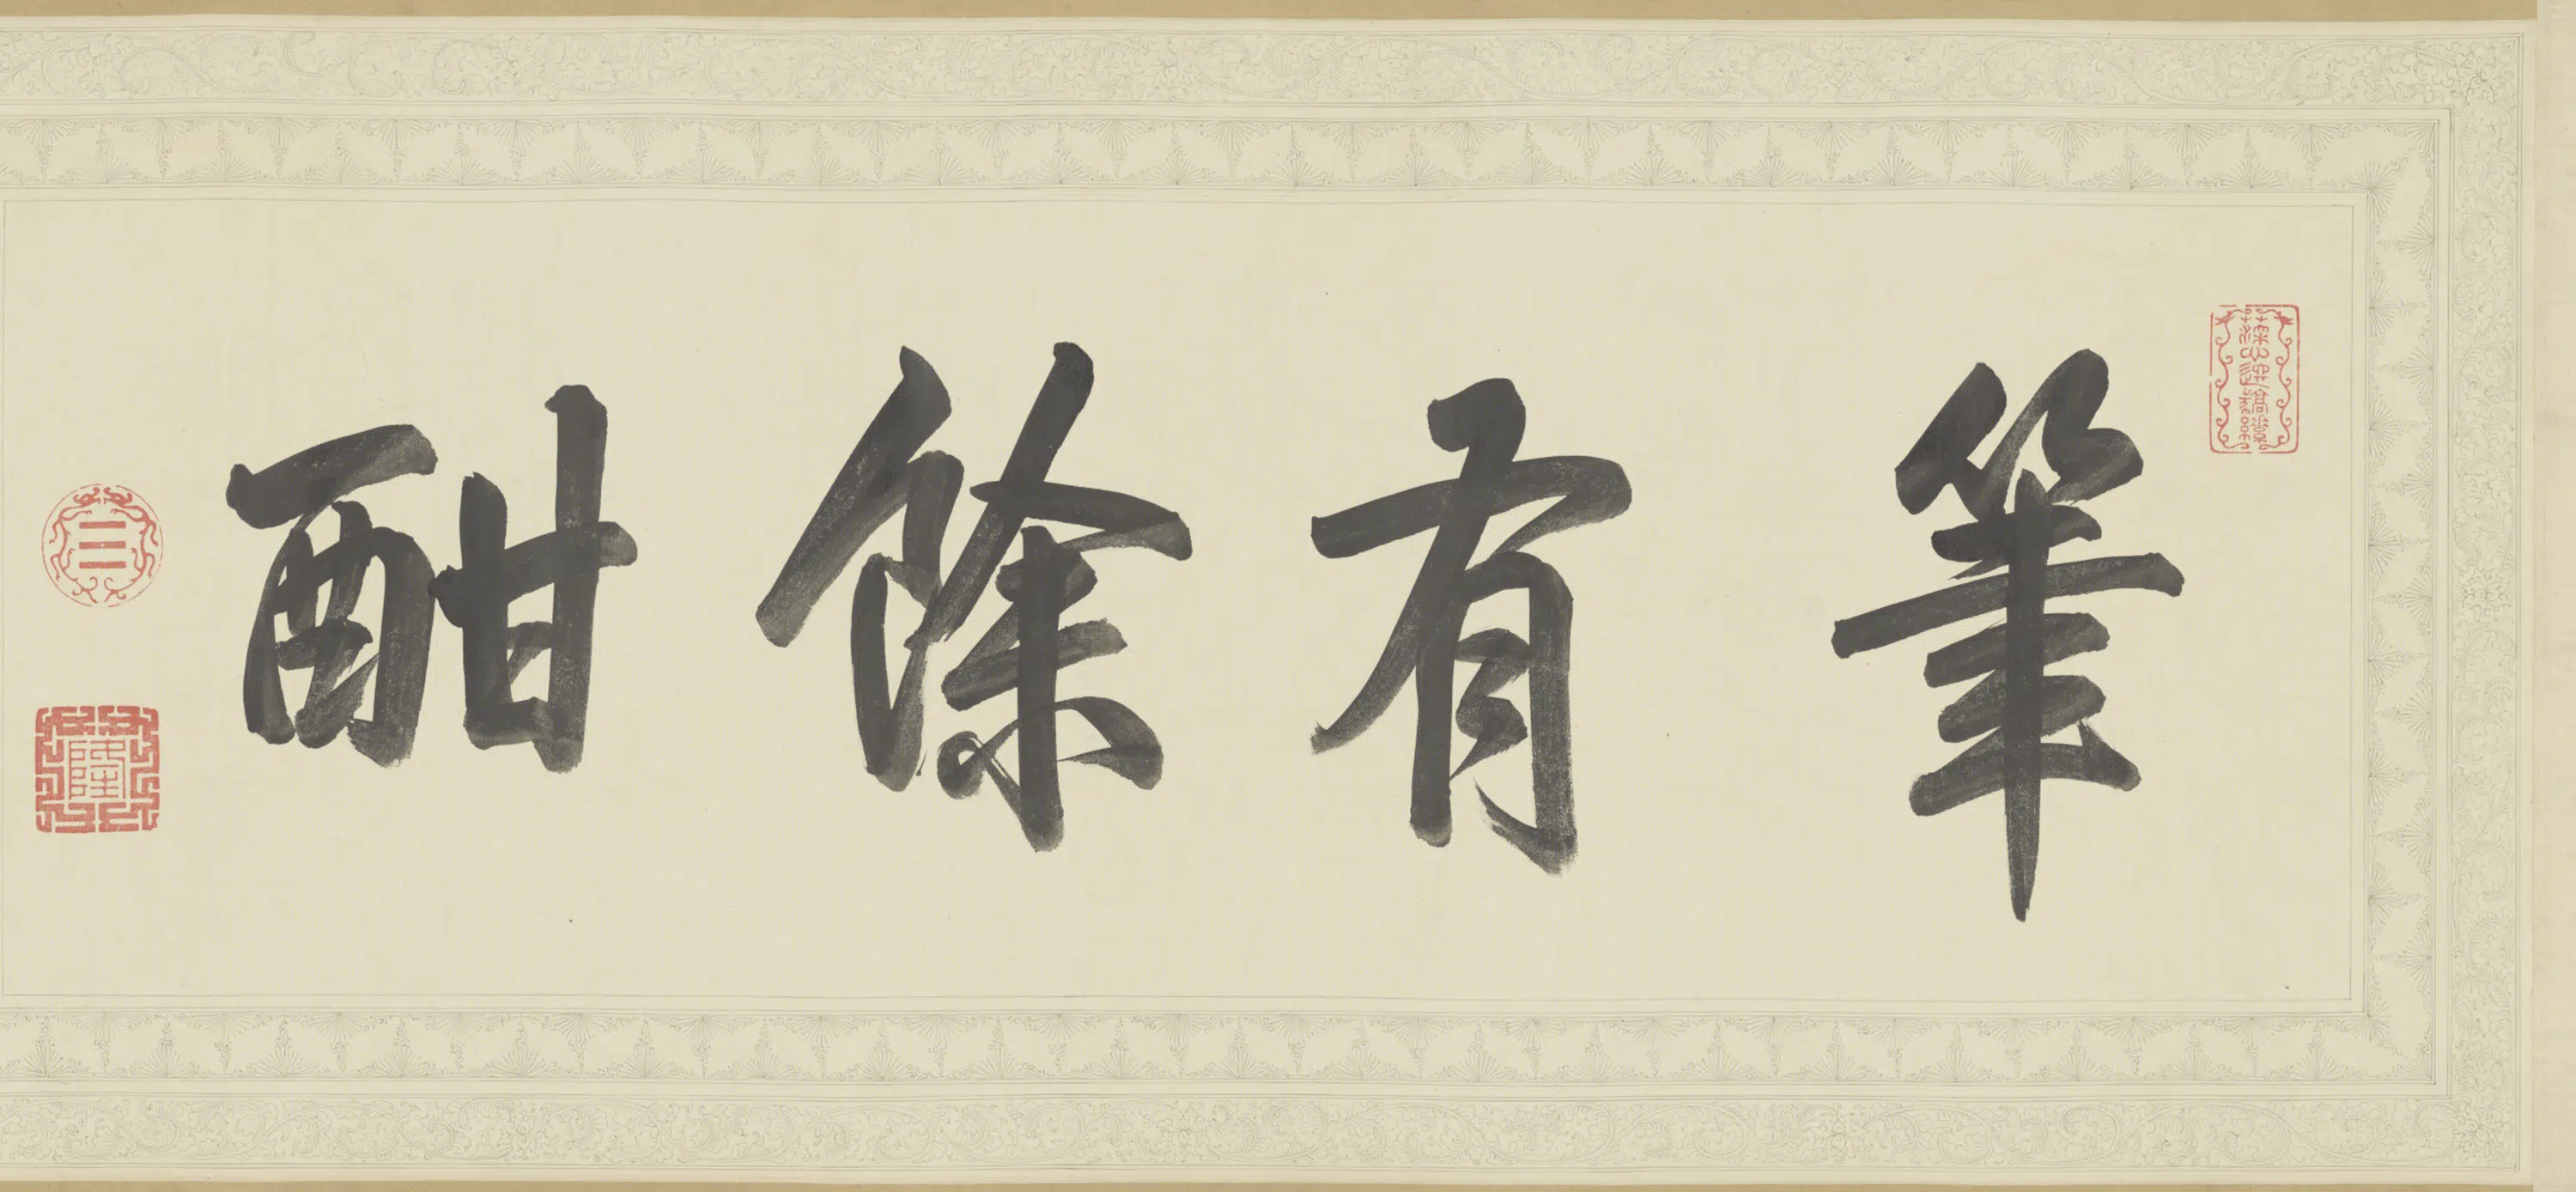 筆有餘酣
☰
隆